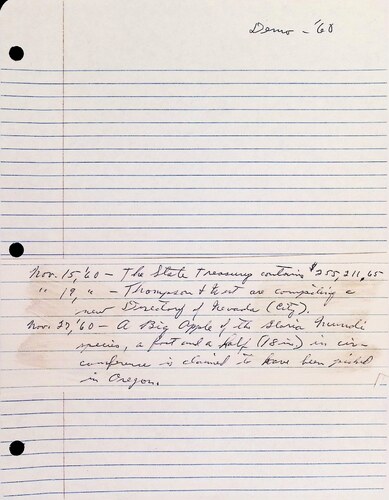 Demo - '60
Nov. 15, '60 - The State Treasury contains $255,211,65
" 19, " - Thompson & West are compiling a
new Directory of Nevada (City).
Nov. 27, '60 - A Big Apple of the Gloria Mundi
species, a foot and a half (18 in) in cir-
cumference is claimed to have been picked
in Oregon.